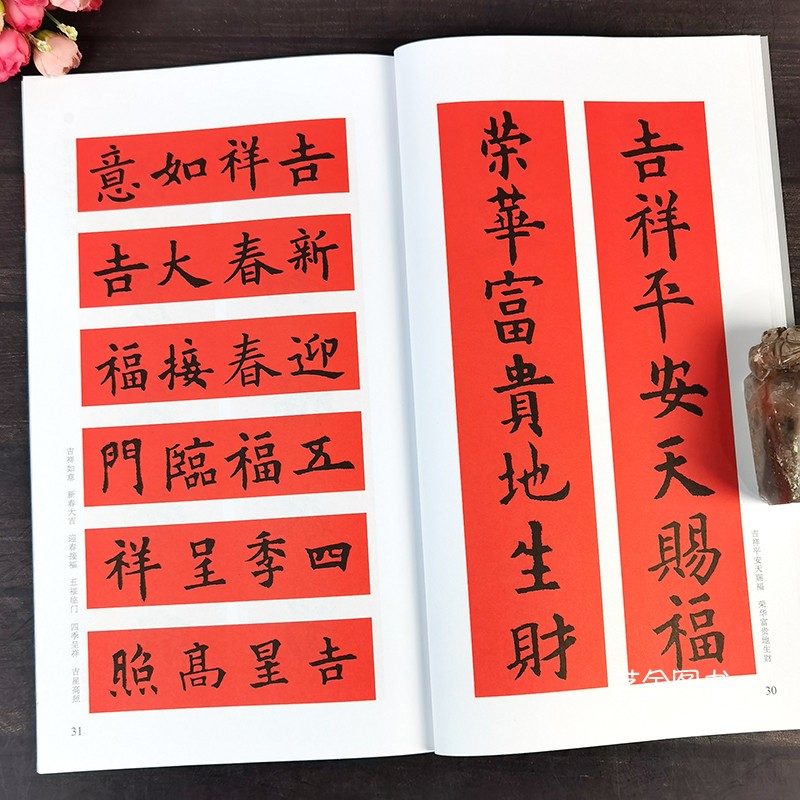 吉祥平安天賜福
荣華富貴地生財
吉祥平安天赐福 荣华富贵地生财
30
吉祥如意
新春大吉
迎春接福
五福臨門
四季呈祥
吉星高照
吉祥如意 新春大吉 迎春接福 五福临门 四季呈祥 吉星高照
31